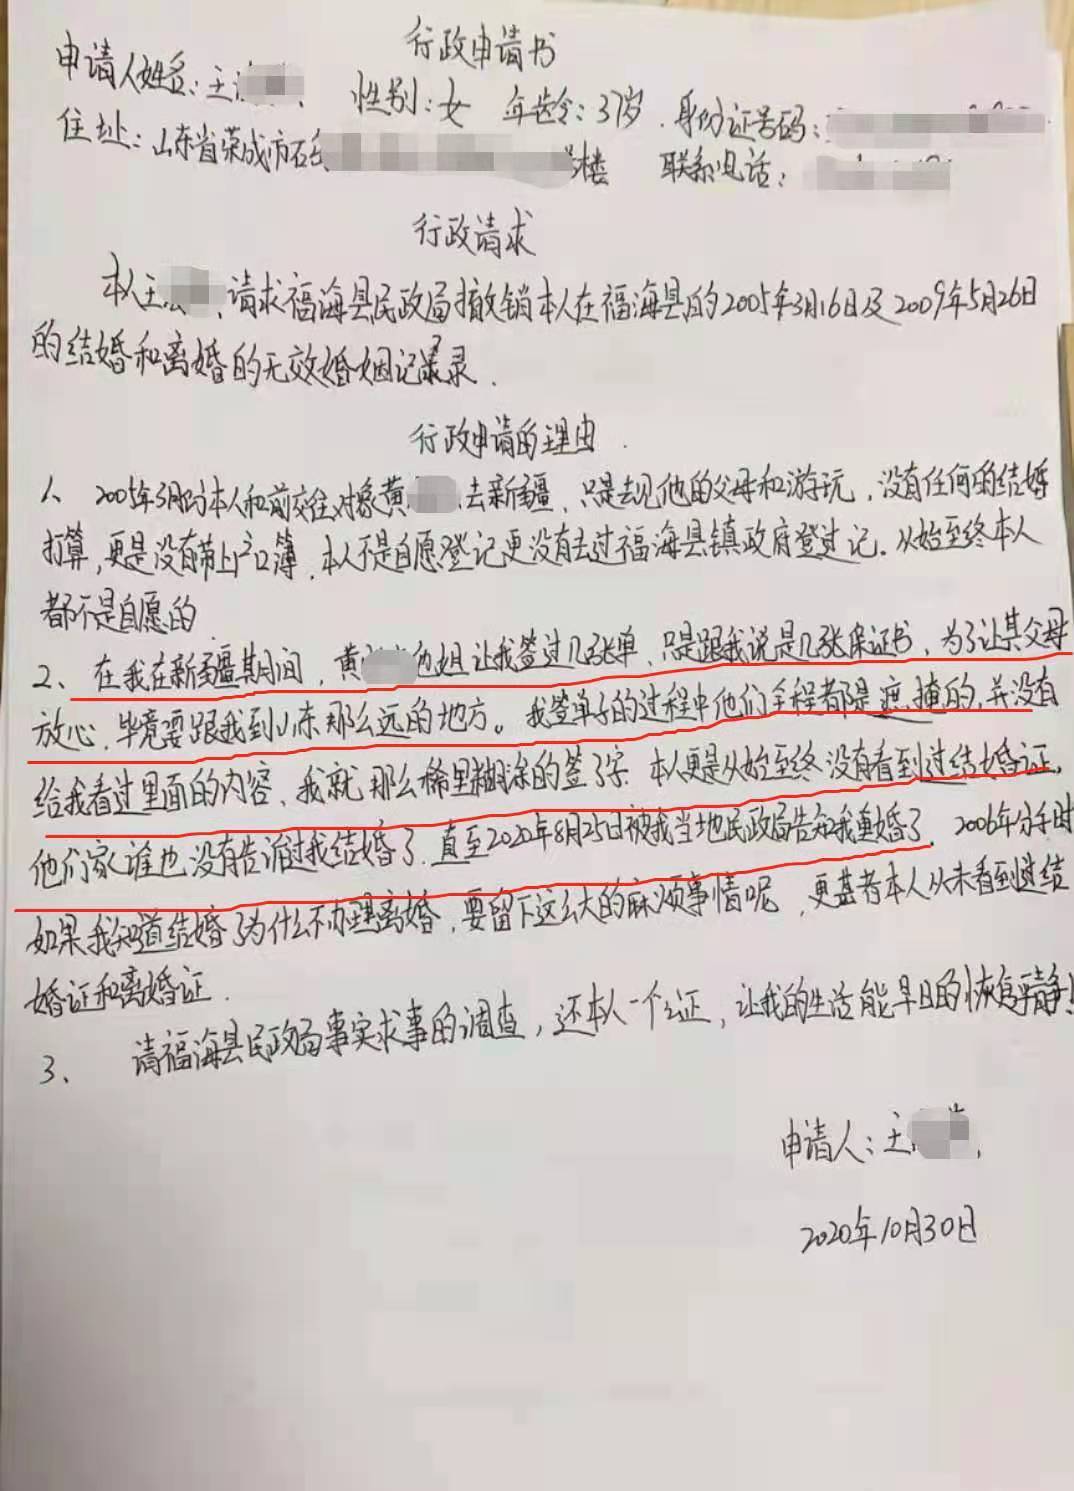 行政申请书
申请人姓名：王 性别：女 年龄：37岁．身份证号码：
住址：山东省荣成市石 楼 联系电话：
行政请求
本人王 ，请求福海县民政局撤销本人在福海县的2005年3月16日及2009年5月26日
的结婚和离婚的无效婚姻记录录．
行政申请的理由．
1、2005年3月时本人和前交往对象黄 去新疆，只是去见他的父母和游玩，没有任何的结婚
打算，更是没有带上户口簿，本人不是自愿登记更没有去过福海县镇政府登过记．从始至终本人
都不是自愿的
2、在我在新疆期间，黄 他姐让我签过几张单，只是跟我说是几张保证书，为了让其父母
放心，毕竟要跟我到山东那么远的地方。我签单子的过程中他们全程都是遮掩的，并没有
给我看过里面的内容、我就那么稀里糊涂的签了字．本人更是从始至终没有看到过结婚证，
他们家谁也没有告诉过我结婚了，直至2020年8月25日被我当地民政局告知我重婚了．2006年分手时
如果我知道结婚了为什么不办理离婚，要留下这么大的麻烦事情呢，更甚者本人从未看到过结
婚证和离婚证．
3、请福海县民政局事实求事的调查，还本人一个公证，让我的生活能早日的恢复平静！
申请人：王
2020年10月30日